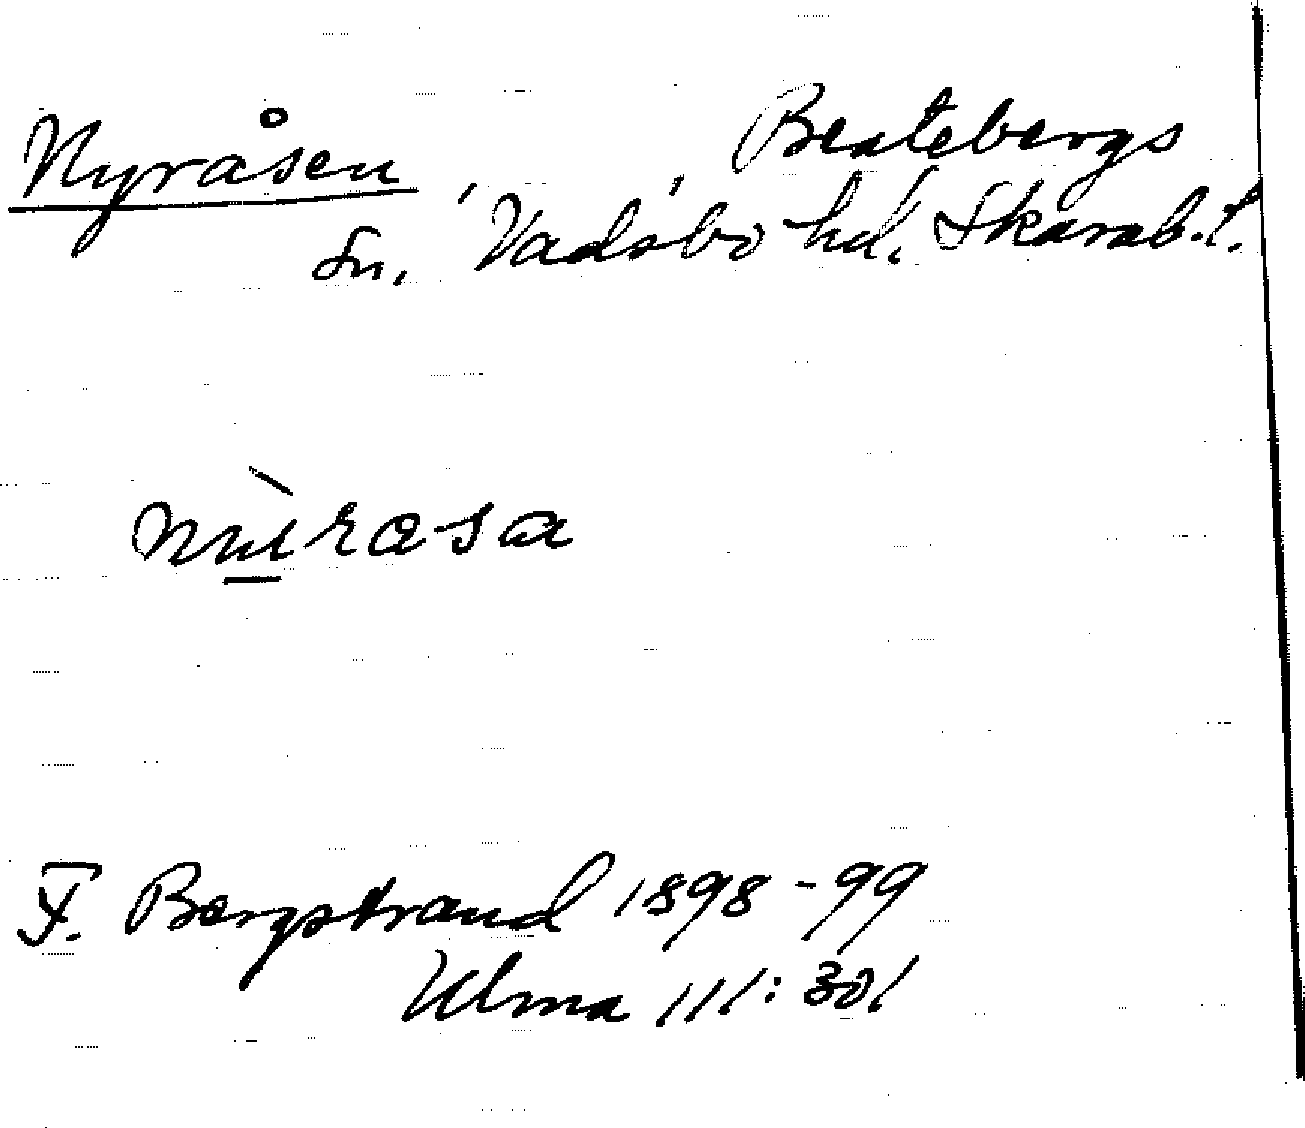 Nyråsen, Beatebergs
sn, Vadsbo hd. Skarab.l.
nùrasa
F. Bergstrand 1898-99
Ulma 111:301